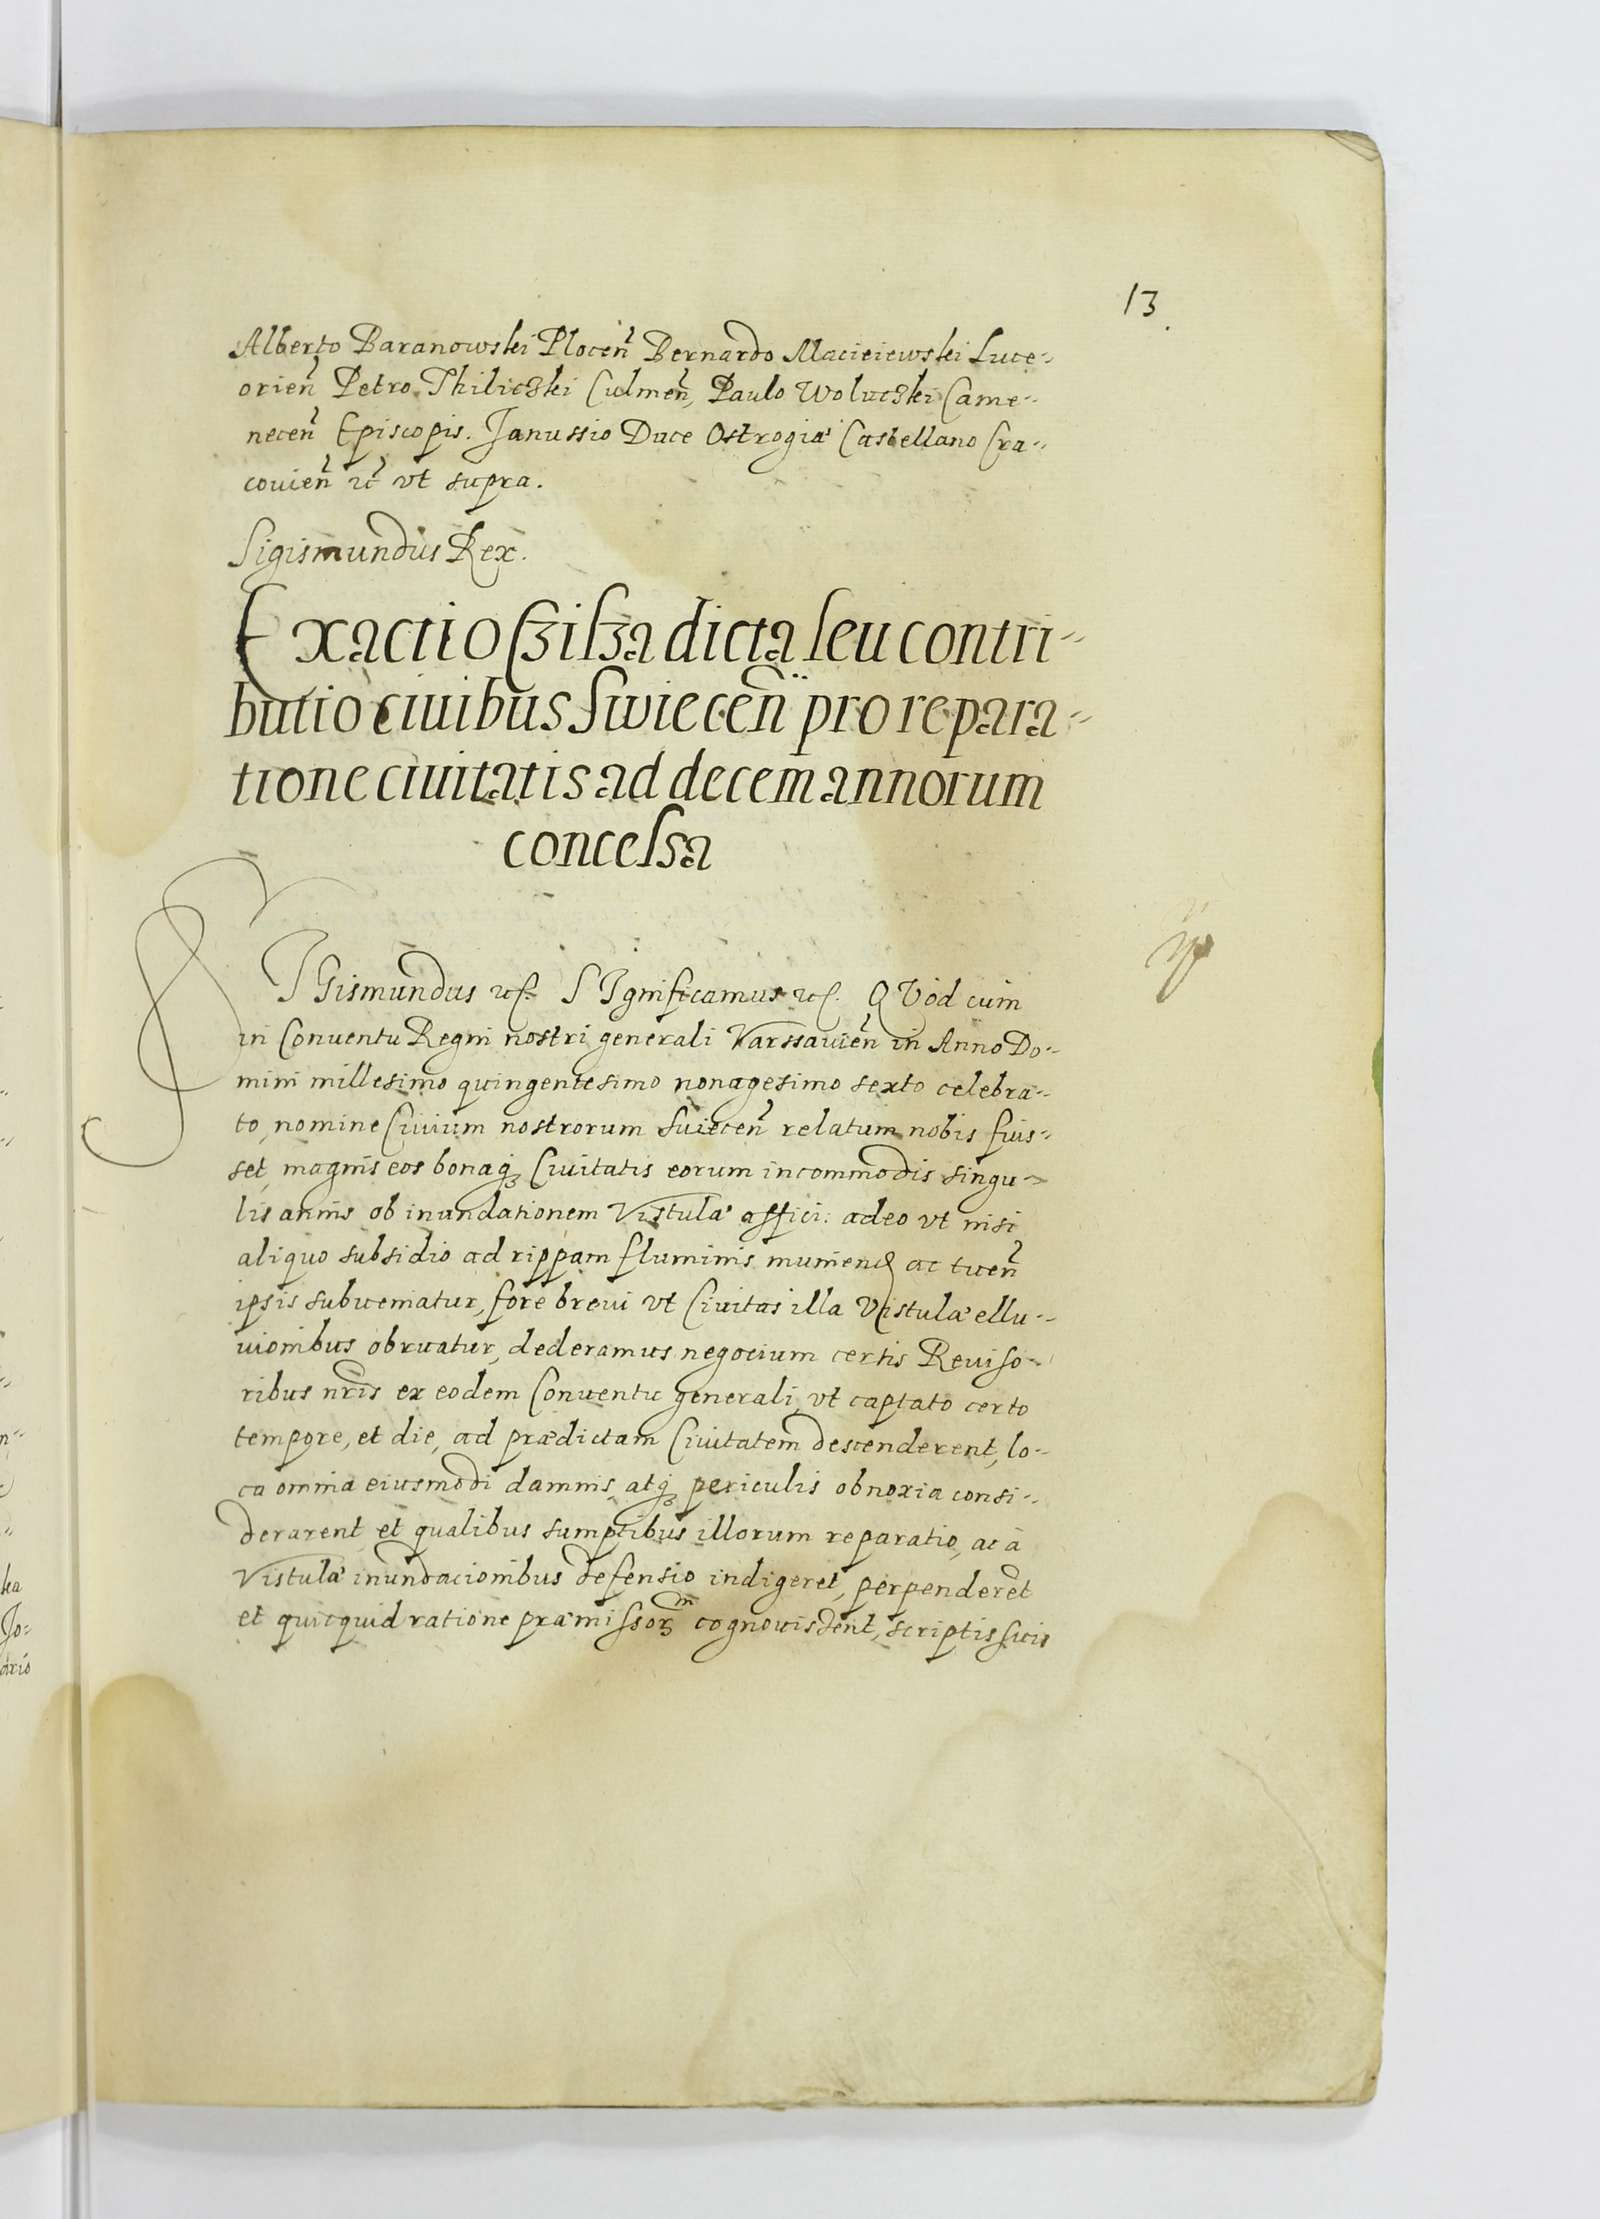 13
Alberto Baranowski Plocen̄ Bernardo Macieiewski Luce-
orien̄ Petro Thiliczki Culmen̄, Paulo Woluczki Came-
necen̄ Episcopis. Janussio Duce Ostrogiæ Castellano Cra-
couien̄ ꝛc̄ vt supra.
Sigismundus Rex.
Exactio Cziſza dicta ſeu contri-
butio ciuibus Swiecen̄ pro repara-
tione ciuitatis ad decem annorum
conceſsa
SIGismundus ꝛc. SIgnificamus ꝛc. QVod cum
in Conuentu Regni nostri generali Varssauien̄ in Anno Do-
mini millesimo quingentesimo nonagesimo sexto celebra-
to, nomine Ciuium nostrorum Suiecen̄ relatum nobis fuis-
set, magnis eos bonaq̢ Ciuitatis eorum incommodis singu-
lis annis ob inundationem Vistulæ affici: adeo vt nisi
aliquo subsidio ad rippam fluminis muniend̄ ac tuen̄
ipsis subueniatur, fore breui vt Ciuitas illa Vistulæ ellu-
uionibus obruatur, dederamus negocium certis Reuiso-
ribus nr̄is ex eodem Conuentu generali, vt captato certo
tempore, et die, ad prædictam Ciuitatem descenderent, lo-
ca omnia eiusmodi damnis, atq̢ periculis obnoxia consi-
derarent, et qualibus sumptibus illorum reparatio, ac à
Vistulæ inundacionibus defensio indigeret, perpenderēt
et quicquid ratione præmissoꝝ cognouissent, scriptis suis